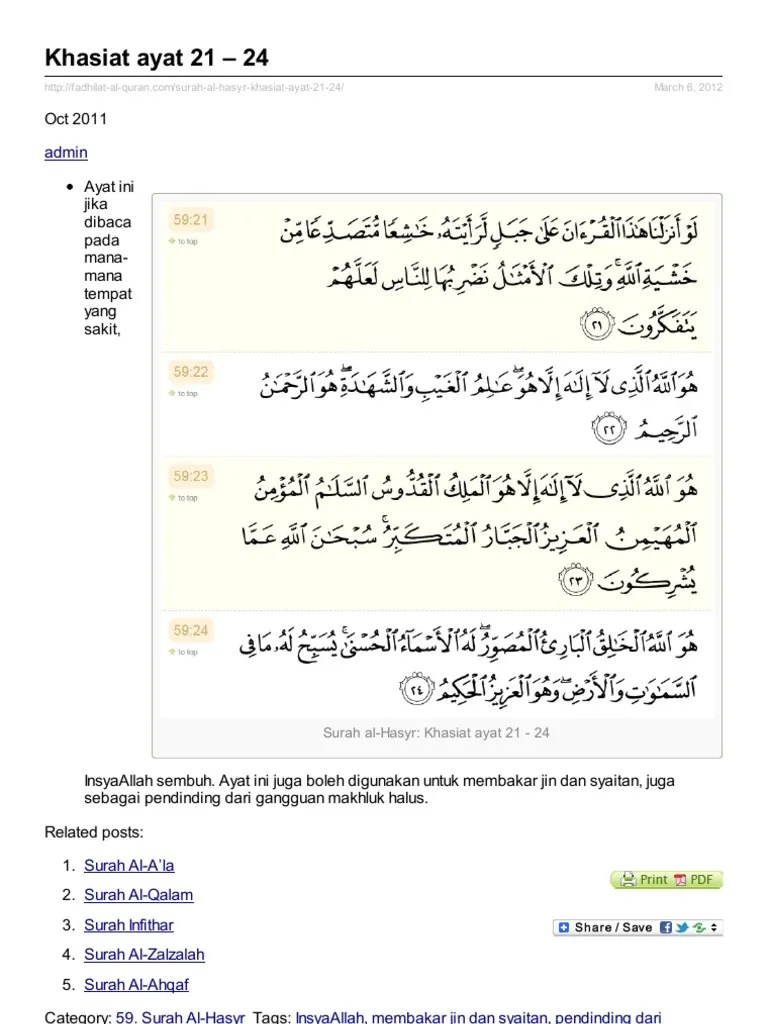 Khasiat ayat 21 – 24
http://fadhilat-al-quran.com/surah-al-hasyr-khasiat-ayat-21-24/ March 6, 2012
Oct 2011
admin
• Ayat ini
jika
dibaca
pada
mana-
mana
tempat
yang
sakit,
59:21
to top
لَوْ أَنزَلْنَا هَٰذَا ٱلْقُرْءَانَ عَلَىٰ جَبَلٍ لَّرَأَيْتَهُۥ خَٰشِعًا مُّتَصَدِّعًا مِّنْ
خَشْيَةِ ٱللَّهِ ۚ وَتِلْكَ ٱلْأَمْثَٰلُ نَضْرِبُهَا لِلنَّاسِ لَعَلَّهُمْ
يَتَفَكَّرُونَ ﴿٢١﴾
59:22
to top
هُوَ ٱللَّهُ ٱلَّذِى لَآ إِلَٰهَ إِلَّا هُوَ ۖ عَٰلِمُ ٱلْغَيْبِ وَٱلشَّهَٰدَةِ ۖ هُوَ ٱلرَّحْمَٰنُ
ٱلرَّحِيمُ ﴿٢٢﴾
59:23
to top
هُوَ ٱللَّهُ ٱلَّذِى لَآ إِلَٰهَ إِلَّا هُوَ ٱلْمَلِكُ ٱلْقُدُّوسُ ٱلسَّلَٰمُ ٱلْمُؤْمِنُ
ٱلْمُهَيْمِنُ ٱلْعَزِيزُ ٱلْجَبَّارُ ٱلْمُتَكَبِّرُ ۚ سُبْحَٰنَ ٱللَّهِ عَمَّا
يُشْرِكُونَ ﴿٢٣﴾
59:24
to top
هُوَ ٱللَّهُ ٱلْخَٰلِقُ ٱلْبَارِئُ ٱلْمُصَوِّرُ ۖ لَهُ ٱلْأَسْمَآءُ ٱلْحُسْنَىٰ ۚ يُسَبِّحُ لَهُۥ مَا فِى
ٱلسَّمَٰوَٰتِ وَٱلْأَرْضِ ۖ وَهُوَ ٱلْعَزِيزُ ٱلْحَكِيمُ ﴿٢٤﴾
Surah al-Hasyr: Khasiat ayat 21 - 24
InsyaAllah sembuh. Ayat ini juga boleh digunakan untuk membakar jin dan syaitan, juga
sebagai pendinding dari gangguan makhluk halus.
Related posts:
1. Surah Al-A’la
2. Surah Al-Qalam
3. Surah Infithar
4. Surah Al-Zalzalah
5. Surah Al-Ahqaf
Print PDF
Share / Save
Category: 59. Surah Al-Hasyr Tags: InsyaAllah, membakar jin dan syaitan, pendinding dari